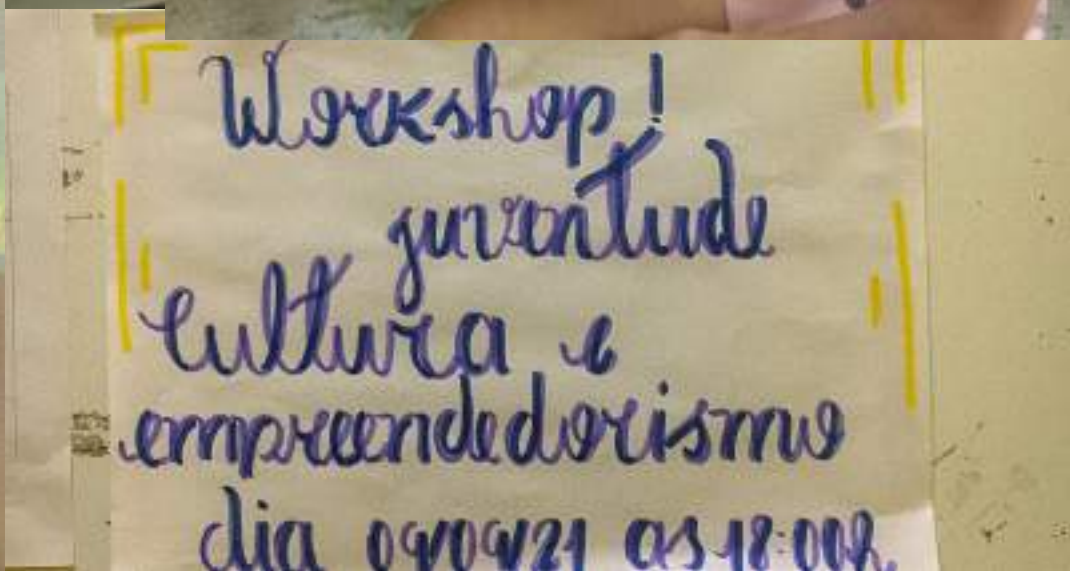 Workshop!
juventude
Cultura e
empreendedorismo
dia 09/09/21 as 18:00h